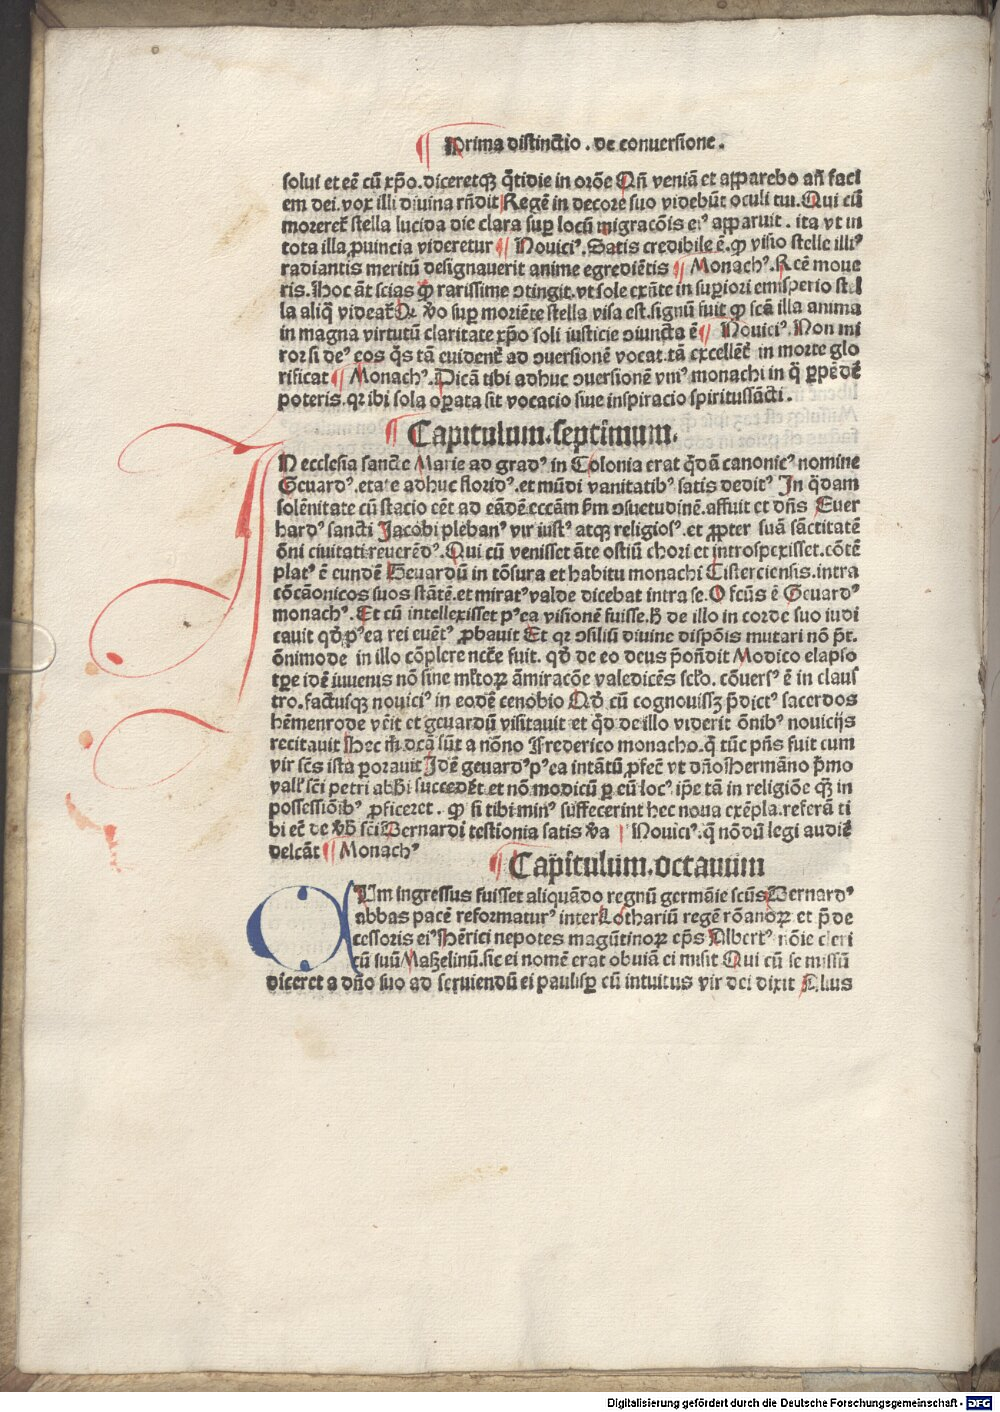 ¶ Prima distinctio . de conuersione .
solui et eē cū xp̄o. diceretqꝫ q̄tidie in orōe Qn̄ veniā et apparebo an̄ faci
em dei. vox illi diuina rn̄dit Regē in decore suo videbūt oculi tui. Qui cū
morereť stella lucida die clara suꝑ locū migracōis eiꝰ apparuit . ita vt in
tota illa ꝓuincia videretur ¶ Nouiciꝰ. Satis credibile ē. ꝙ visio stelle illiꝰ
radiantis meritū designauerit anime egrediētis ¶ Monachꝰ. Rcē moue
ris. Hoc āt scias ꝙ rarissime ↄtingit. vt sole exn̄te in suꝑiori emisperio stel
la aliq̄ videať Qr v̄o suꝑ moriēte stella visa est. signū fuit ꝙ scā illa anima
in magna virtutū claritate xp̄o soli iusticie ↄiuncta ē ¶ Nouiciꝰ. Non mi
ror si deꝰ eos q̄s tā euidenť ad ↄuersionē vocat. tā excellēť in morte glo
rificat ¶ Monachꝰ. Dicā tibi adhuc ↄuersionē vniꝰ monachi in q̄ ꝑpēdē
poteris. qr ibi sola oꝑata sit vocacio siue inspiracio spiritussācti .
¶ Capitulum . septimum .
IN ecclesia sancte Marie ad gradꝰ in Colonia erat q̄dā canonicꝰ nomine
Geuardꝰ. etate adhuc floridꝰ. et mūdi vanitatibꝰ satis deditꝰ In q̄dam
solēnitate cū stacio cēt ad eādē eccām ẜm ↄsuetudinē. affuit et dn̄s Euer
hardꝰ sancti Jacobi plebanꝰ vir iustꝰ atqꝫ religiosꝰ. et ꝓpter suā sāctitatē
ōni ciuitati reuerēdꝰ. Qui cū venisset āte ostiū chori et introspexisset. cōtē
platꝰ ē eundē Geuardū in tōsura et habitu monachi Cisterciensis. intra
cōcāonicos suos stātē. et miratꝰ valde dicebat intra se. O fcūs ē Geuardꝰ
monachꝰ. Et cū intellexisset pꝰea visionē fuisse. h̄ de illo in corde suo iudi
cauit qd̄ pꝰea rei euētꝰ ꝓbauit Et qr ↄsiliū diuine dispōis mutari nō p̄t.
ōnimode in illo cōplere ncē fuit. qd̄ de eo deus p̄ōn̄dit Modico elapso
tꝑe idē iuuenis nō sine mltorꝝ āmiracōe valedicēs sclo. cōuersꝰ ē in claus
tro. factusqꝫ nouiciꝰ in eodē cenobio Qd̄ cū cognouissꝫ p̄dictꝰ sacerdos
hēmenrode vēit et geuardū visitauit et qd̄ de illo viderit ōnibꝰ nouicijs
recitauit Hec m̄ dcā sūt a nōno Frederico monacho. q̄ tūc pn̄s fuit cum
vir scs̄ ista ꝑorauit Idē geuardꝰ pꝰea intātū ꝓfec̄ vt dn̄o Hermāno p̄mo
vallꝰ scī petri abbī succedēt et nō modicū ꝑ eū locꝰ ip̄e tā in religiōe qꝫ in
possessiōibꝰ ꝓficeret . ꝙ si tibi minꝰ suffecerint hec noua exēpla. referā ti
bi eē de v̄b scī Bernardi testionia satis v̄a ¶ Nouiciꝰ. q̄ nōdū legi audiē
delcāt ¶ Monachꝰ
¶ Capitulum . octauum
CUm ingressus fuisset aliquādo regnū germāie scūs Bernardꝰ
abbas pacē reformaturꝰ inter Lothariū regē rōanorꝝ et p̄de
cessoris eiꝰ Hērici nepotes magūtinorꝝ ep̄s Albertꝰ nōie cleri
cū suū Maszelinū. sic ei nomē erat obuiā ei misit Qui cū se missū
diceret a dn̄o suo ad seruiendū ei paulisꝑ cū intuitus vir dei dixit Alius
Digitalisierung gefördert durch die Deutsche Forschungsgemeinschaft - DFG